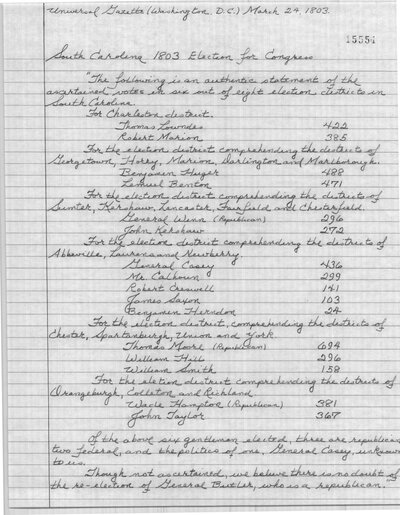 Universal Gazette (Washington, D.C.) March 24, 1803.
15554
South Carolina 1803 Election for Congress
"The following is an authentic statement of the
ascertained votes in six out of eight election districts in
South Carolina.
For Charleston district.
Thomas Lowndes 422
Robert Marion 385
For the election district comprehending the districts of
Georgetown, Horry, Marion, Darlington and Marlborough.
Benjamin Huger 488
Lemuel Benton 471
For the election district comprehending the districts of
Sumter, Kershaw, Lancaster, Fairfield, and Chesterfield.
General Winn (Republican) 296
John Kershaw 272
For the election district comprehending the districts of
Abbeville, Laurens and Newberry.
General Casey 436
Mr. Calhoun 299
Robert Creswell 141
James Saxon 103
Benjamin Herndon 24
For the election district, comprehending the districts of
Chester, Spartanburgh, Union and York
Thomas Moore (Republican) 694
William Hill 296
William Smith 158
For the eletion district comprehending the districts of
Orangeburgh, Colleton and Richland.
Wade Hampton (Republican) 381
John Taylor 367
Of the above six gentlemen elected, three are republican
two federal, and the politics of one, General Casey, unknown
to us.
Though not ascertained, we believe there is no doubt of
the re-election of General Butler, who is a republican."